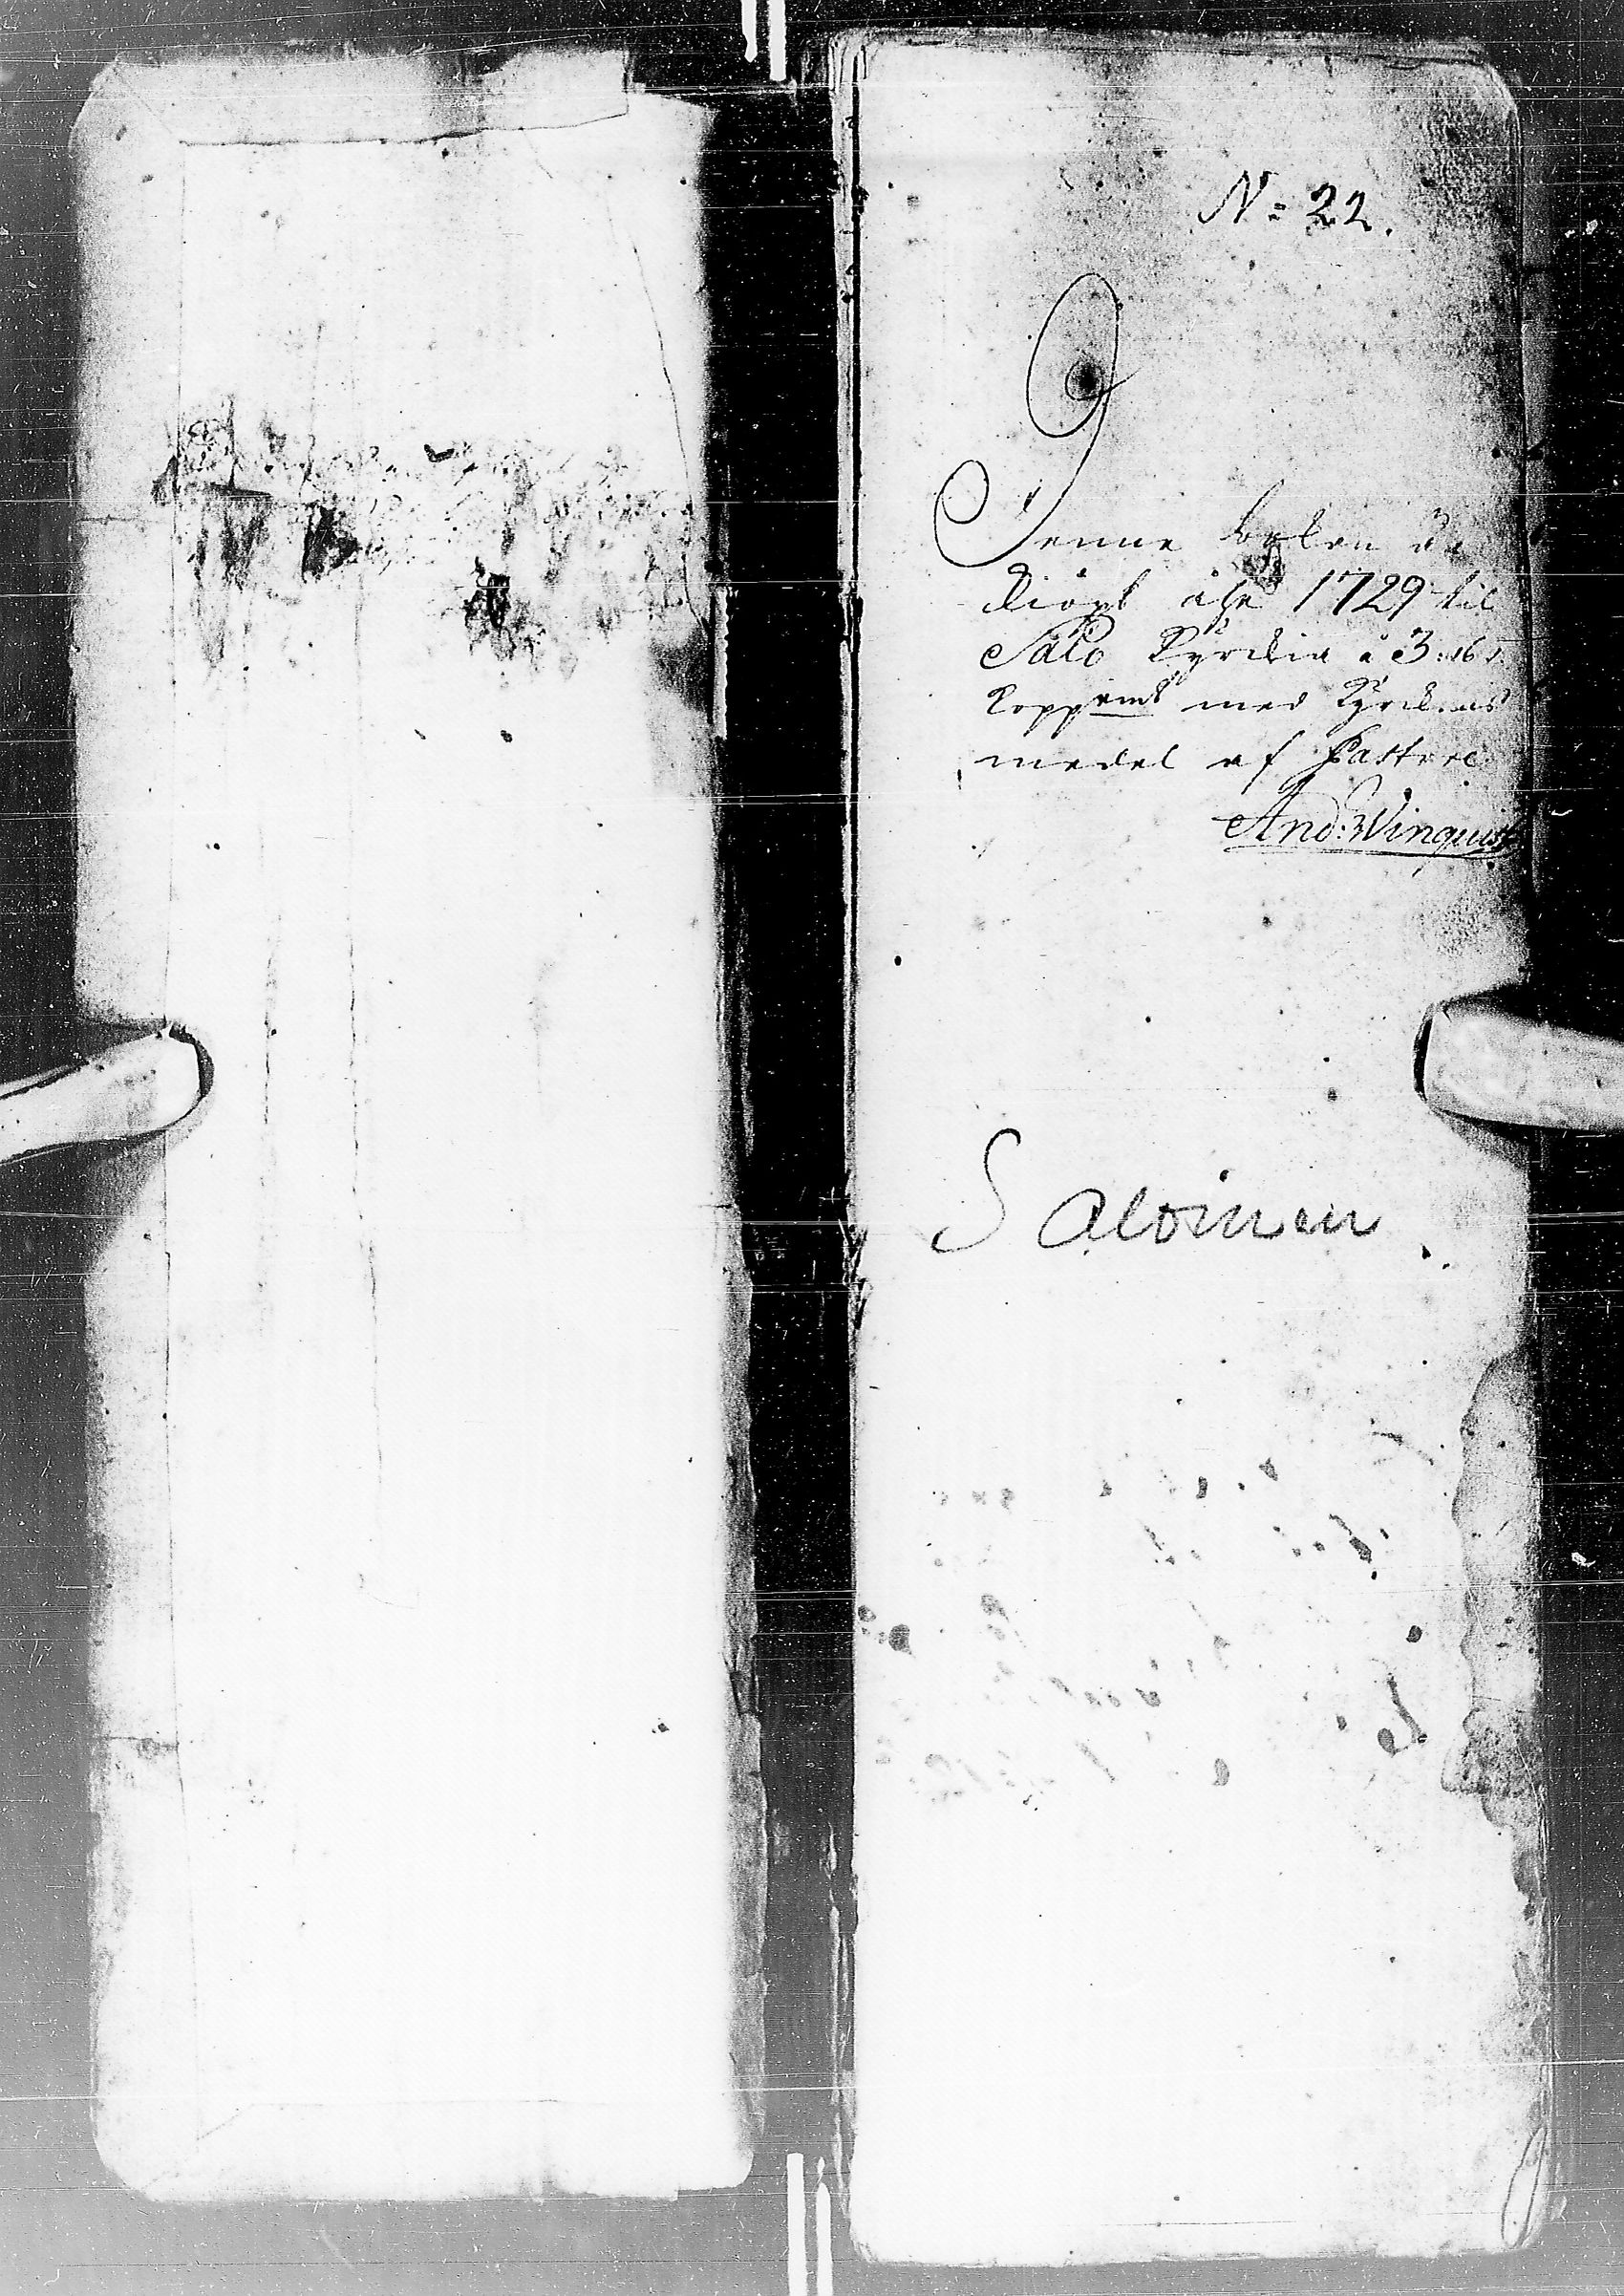 N:22.
Denne boken är
kiöpt åhr 1729 til
Salo Kyrckia á 3:16
Koppmt med Kyrckians
medel af Pastore
And: Winquist
Saloinen